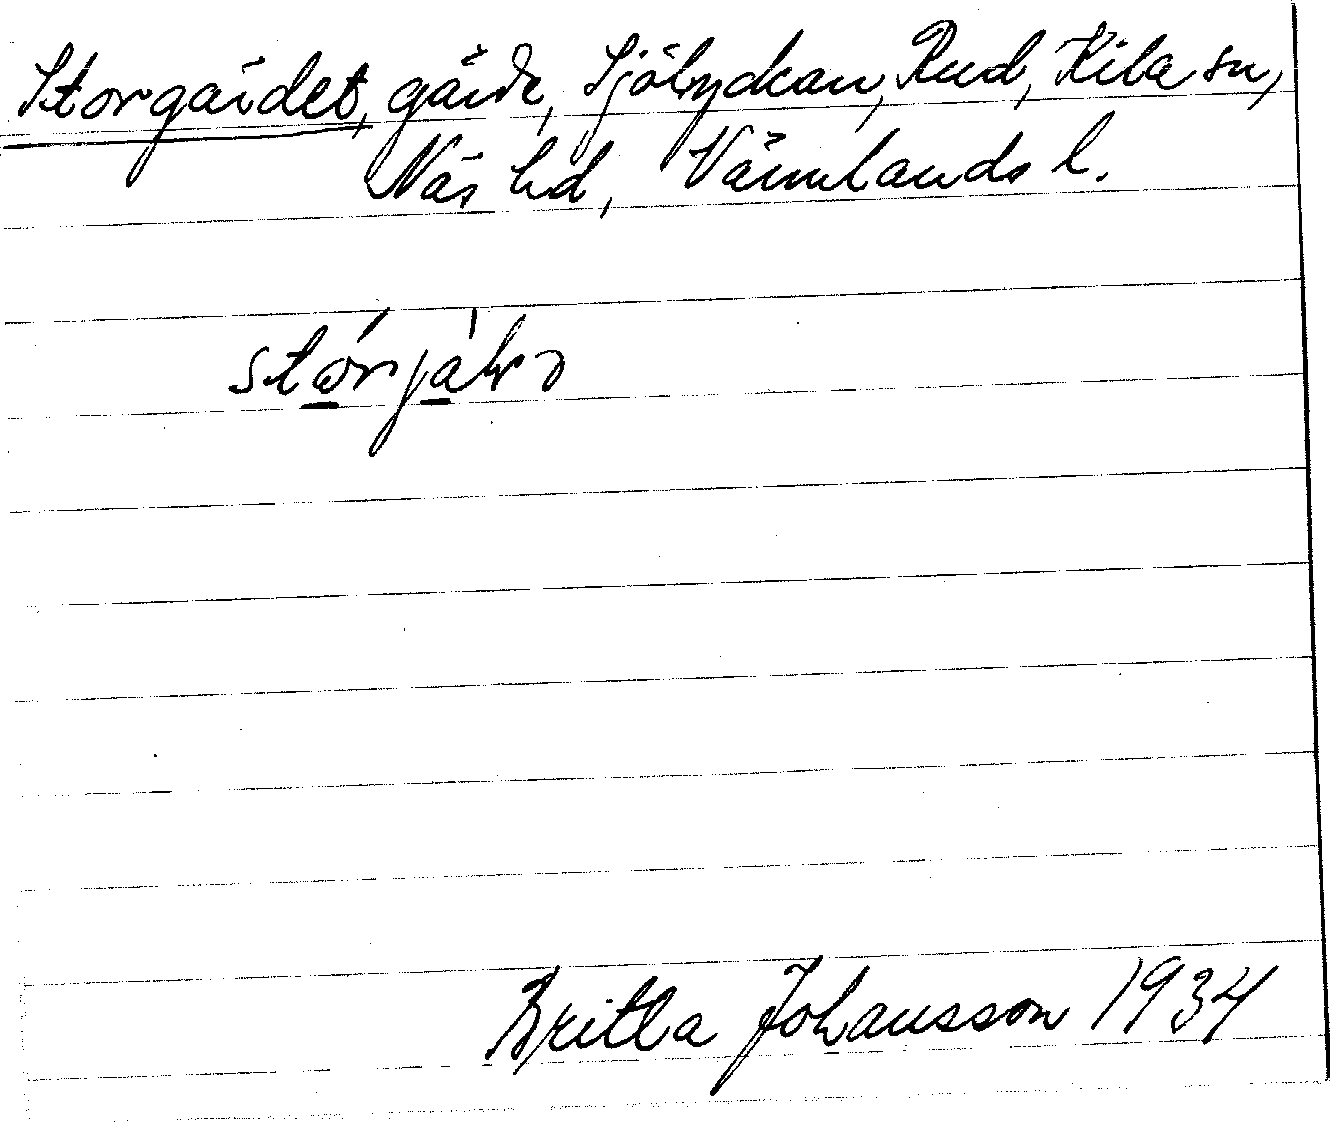 Storgärdet, gärde, Sjölyckan, Rud, Kila sn,
Näs hd, Värmlands l.
Britta Johansson 1934